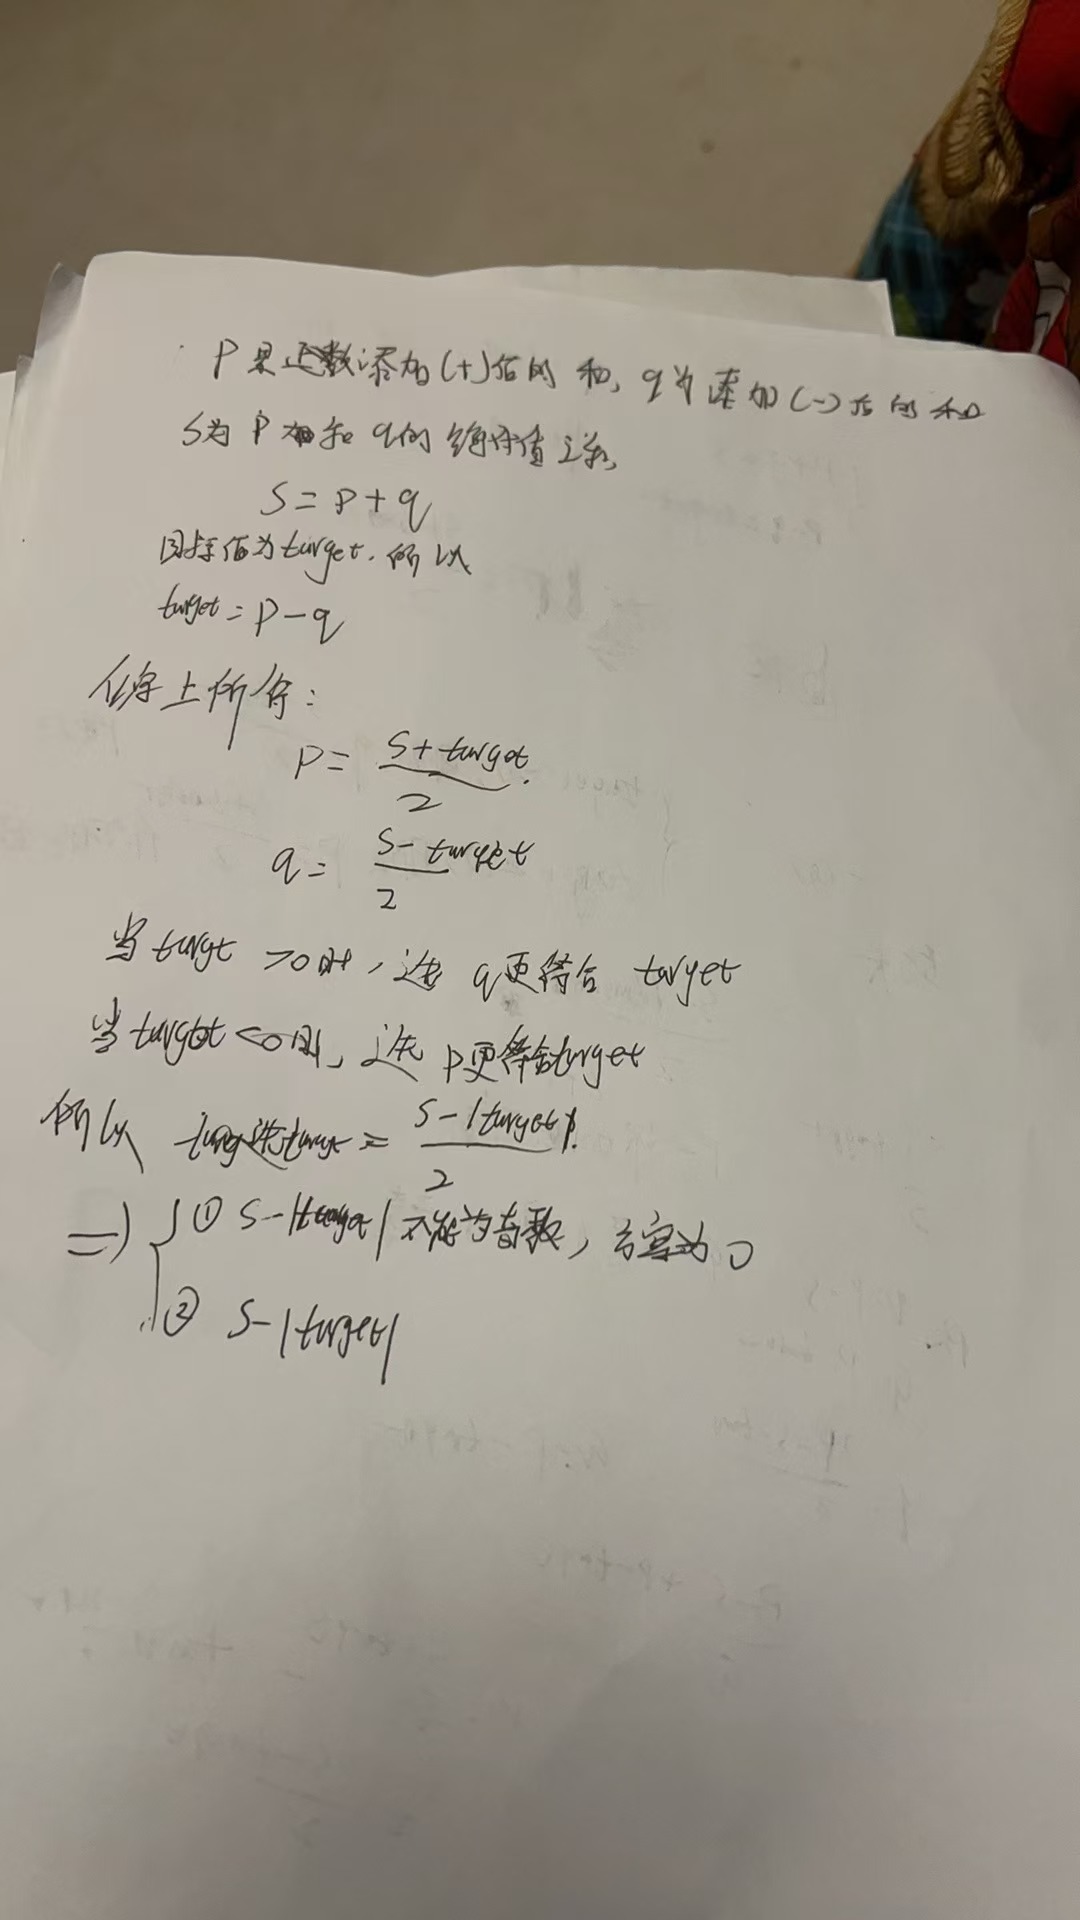 P是正数添加(+)后的和, q为添加(-)后的和
S为P和q的绝对值之和,
S=P+q
目标值为target.所以
target=P-q
综上所得:
P= S+target / 2
q= S-target / 2
当target >0时,选 q更符合 target
当target<0时,选 p更符合target
所以 = S-|target| / 2
=> { ① S-|target|不能为奇数, 方案为0
② S-|target|